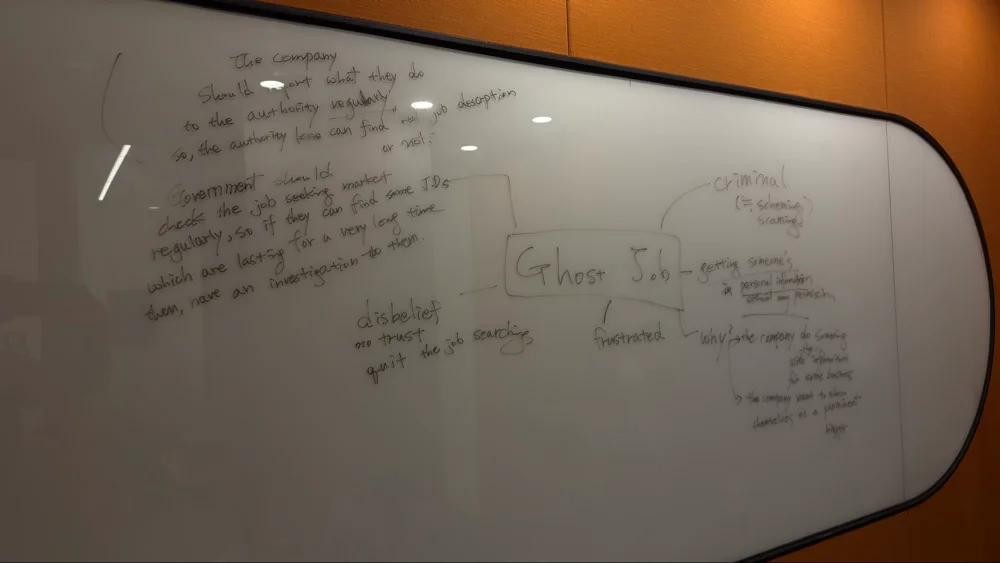 The company
Should report what they do
to the authority regularly
so, the authority can find real job description
or not.
Government should
check the job seeking market
regularly, so if they can find some JDs
which are lasting for a very long time
then, have an investigation to them.
Ghost Job
disbelief
no trust
quit the job searching
frustrated
Criminal
(≒ scheming
scaming)
getting someone's
personal information
without any permission
Why?
→ the company do scaming
the
information
for some business
→ the company want to show
themselves as a prominent